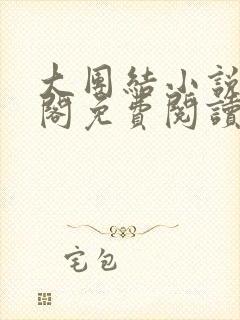 大團結小説
閣免費閱讀
宅包